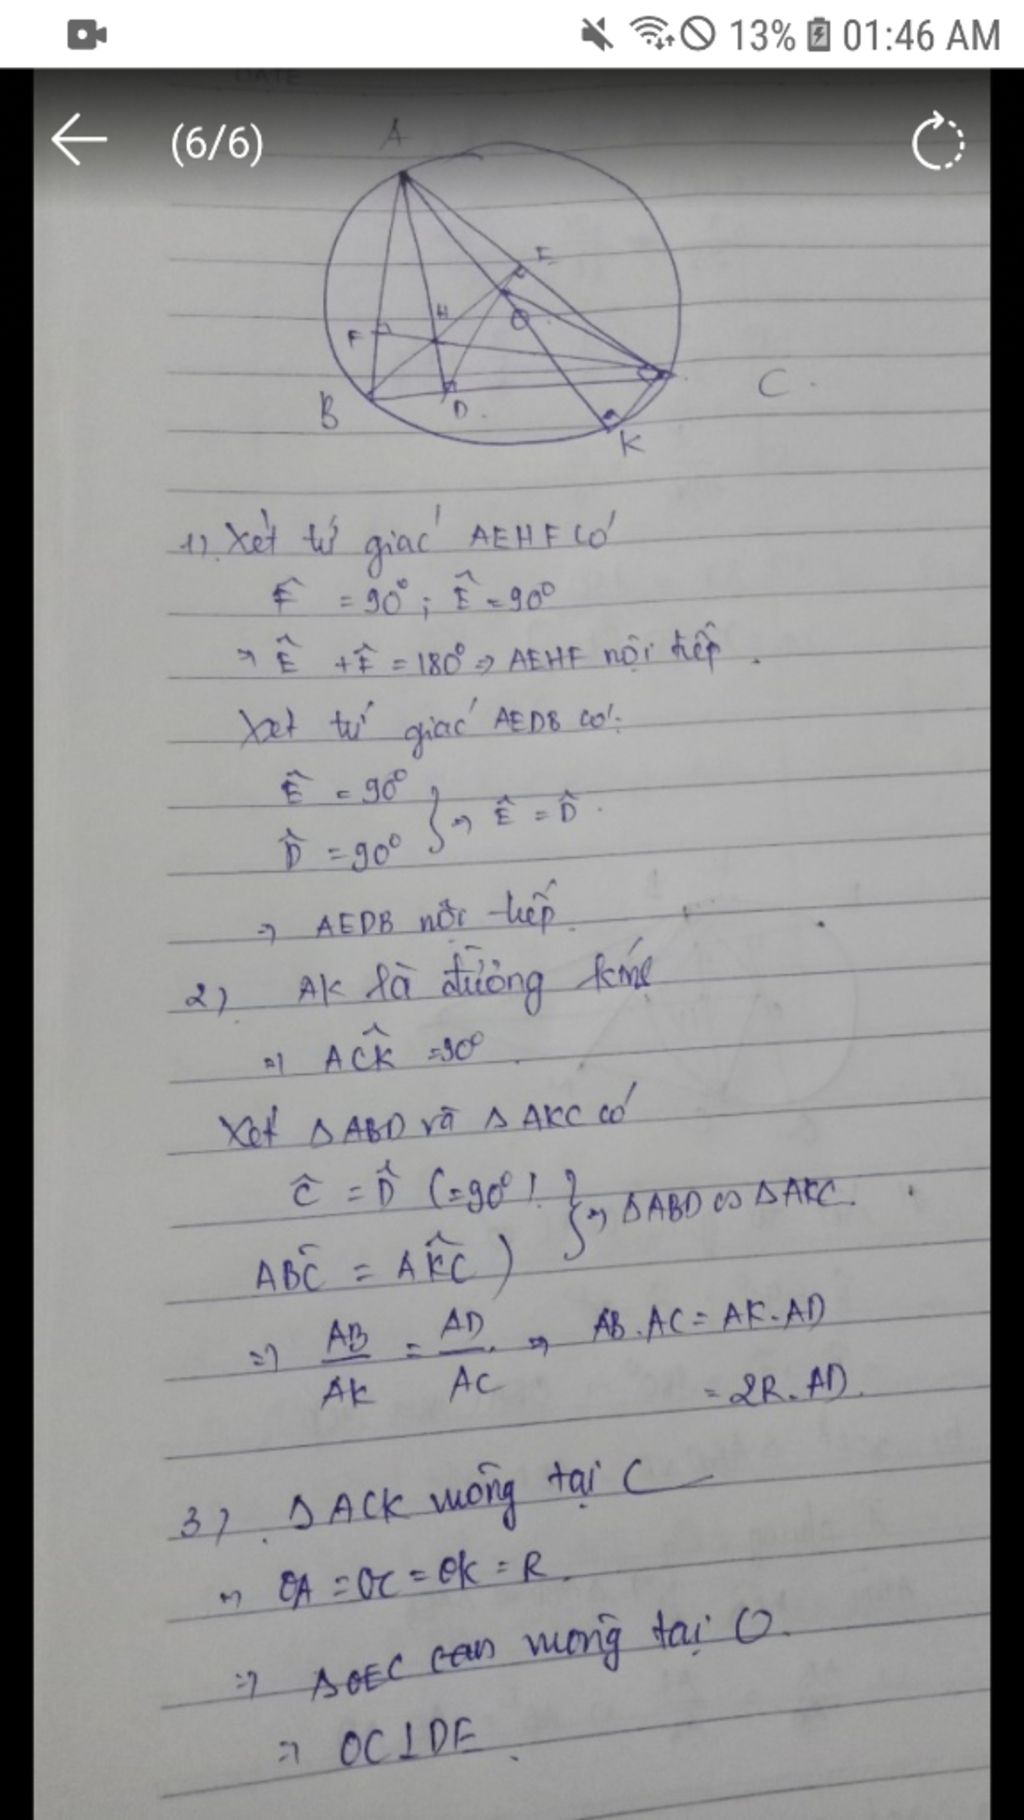 13% 01:46 AM
DATE
(6/6)
A
E
H
O
F
B
D
C
K
1) Xét tứ giác AEHF có
F̂ = 90°; Ê = 90°
⇒ Ê + F̂ = 180° ⇒ AEHF nội tiếp.
Xét tứ giác AEDB có:
Ê = 90°
D̂ = 90° } ⇒ Ê = D̂.
⇒ AEDB nội tiếp.
2) AK là đường kính
⇒ AĈK = 90°.
Xét Δ ABD và Δ AKC có
Ĉ = D̂ (=90°) } ⇒ Δ ABD ∽ Δ AKC.
AB̂C = AK̂C )
⇒ AB/AK = AD/AC ⇒ AB.AC = AK.AD
= 2R.AD.
3) Δ ACK vuông tại C
⇒ OA = OC = OK = R.
⇒ Δ OEC vuông tại O.
⇒ OC⊥DE.